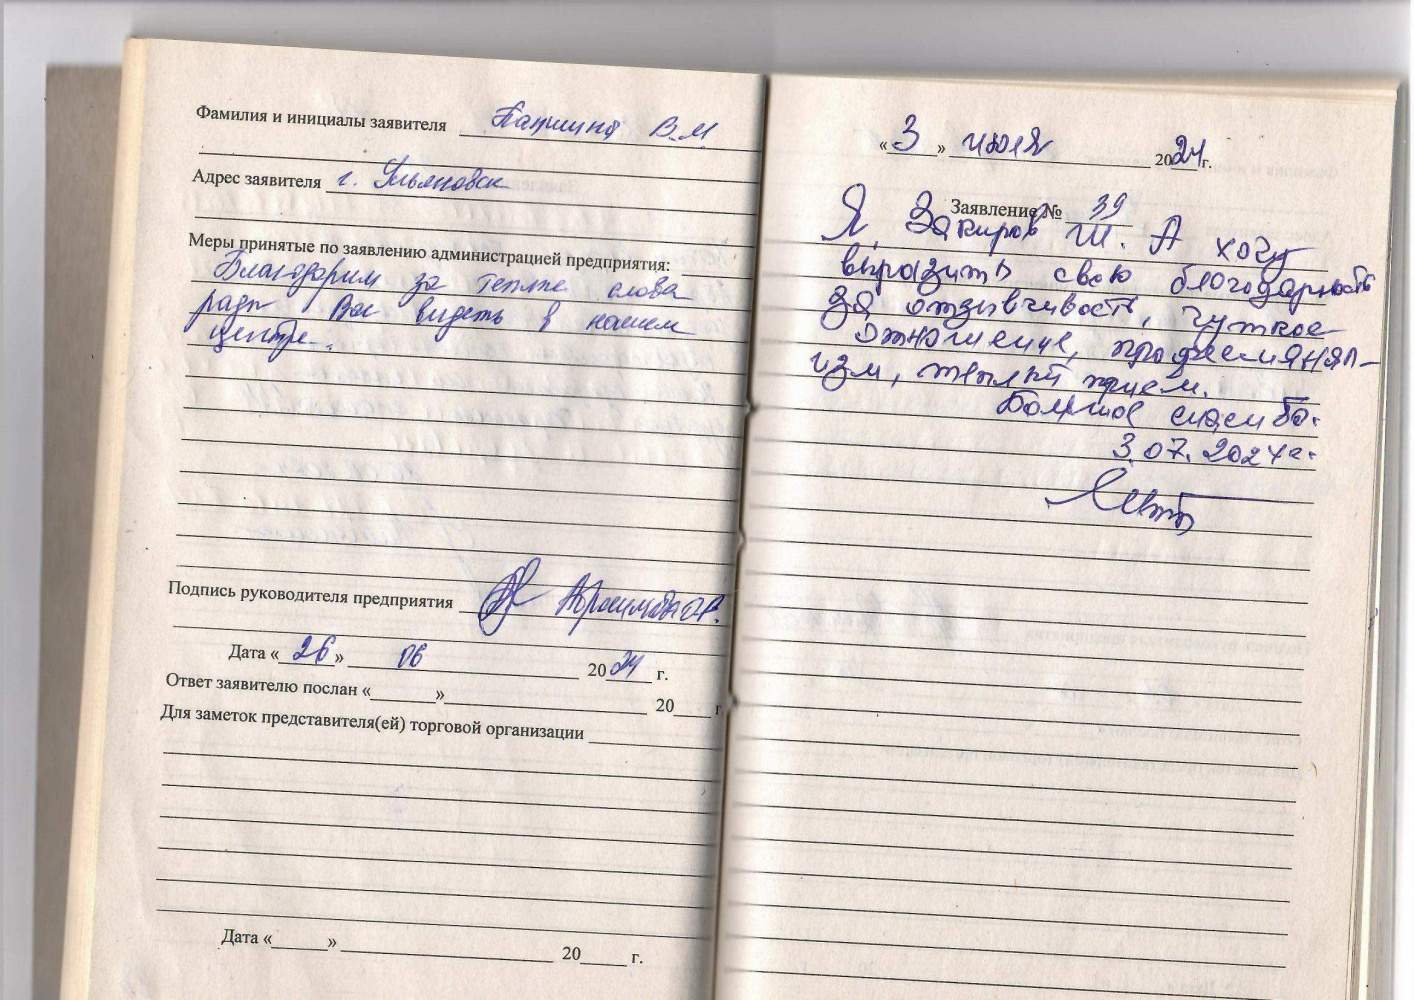 Фамилия и инициалы заявителя В.М.
Адрес заявителя г. Ульяновск
Меры принятые по заявлению администрацией предприятия:
Благодарим за теплые слова
рады Вас видеть в нашем
центре.
Подпись руководителя предприятия
Дата « 26 » 06 2024 г.
Ответ заявителю послан «______»______ 20___ г
Для заметок представителя(ей) торговой организации
Дата «______»______ 20____ г.
« 3 » июля 2024г.
Заявление № 39
Я, Закиров Ш. А хочу
выразить свою благодарность
за отзывчивость, чуткое
отношение,
изм, теплый прием.
Большое спасибо.
3.07.2024г.